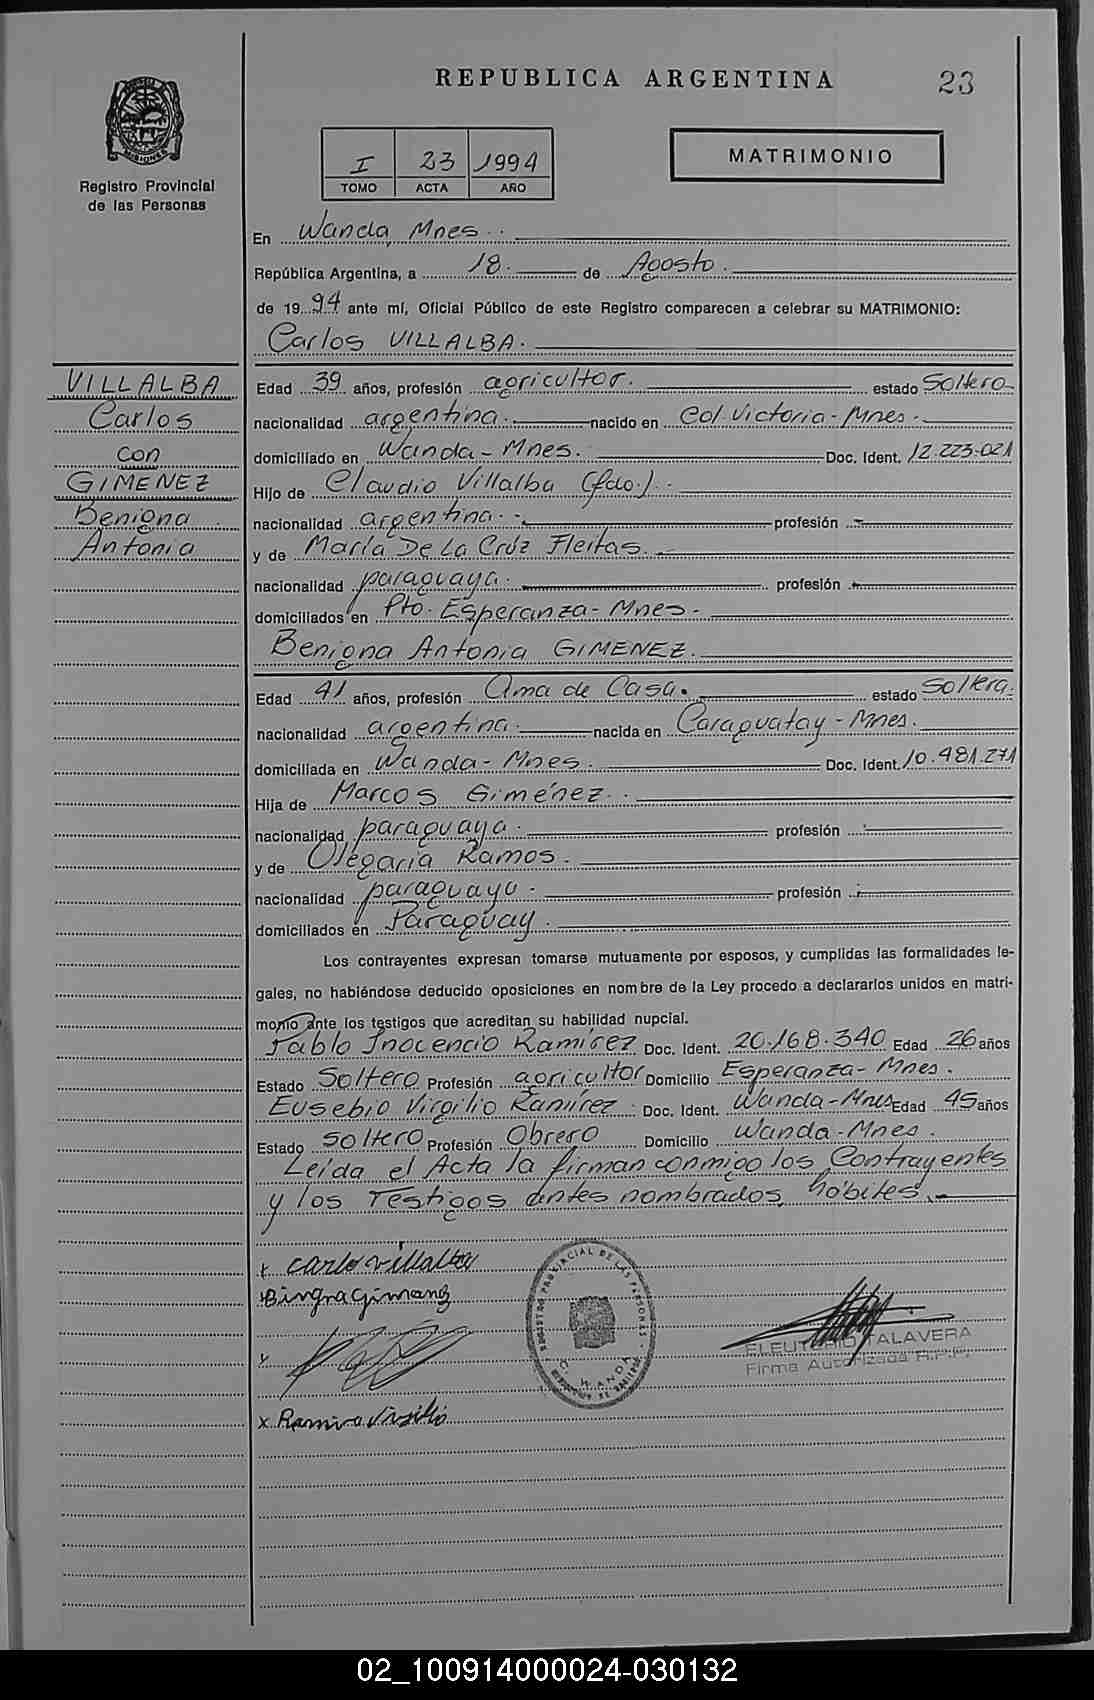 REPUBLICA ARGENTINA
23
MISIONES
Registro Provincial
de las Personas
I 23 1994
TOMO ACTA AÑO
MATRIMONIO
En Wanda, Mnes.
República Argentina, a 18. de Agosto.
de 1994 ante mí, Oficial Público de este Registro comparecen a celebrar su MATRIMONIO:
Carlos VILLALBA.
VILLALBA
Carlos
con
GIMENEZ
Benigna
Antonia
Edad 39 años, profesión agricultor. estado Soltero
nacionalidad argentina. nacido en Col. Victoria - Mnes.
domiciliado en Wanda - Mnes. Doc. Ident. 12.223.021
Hijo de Claudio Villalba (fdo.).
nacionalidad argentina. profesión
y de María De La Cruz Fleitas.
nacionalidad paraguaya. profesión
domiciliados en Pto. Esperanza - Mnes.
Benigna Antonia GIMENEZ.
Edad 41 años, profesión Ama de Casa. estado Soltera.
nacionalidad argentina. nacida en Caraguatay - Mnes.
domiciliada en Wanda - Mnes. Doc. Ident. 10.481.271
Hija de Marcos Giménez.
nacionalidad paraguaya. profesión
y de Olegaria Ramos.
nacionalidad paraguaya. profesión
domiciliados en Paraguay.
Los contrayentes expresan tomarse mutuamente por esposos, y cumplidas las formalidades le-
gales, no habiéndose deducido oposiciones en nombre de la Ley procedo a declararlos unidos en matri-
monio ante los testigos que acreditan su habilidad nupcial.
Pablo Inocencio Ramírez Doc. Ident. 20.168.340 Edad 26 años
Estado Soltero Profesión agricultor Domicilio Esperanza - Mnes.
Eusebio Virgilio Ramírez Doc. Ident. Wanda - Mnes Edad 45 años
Estado Soltero Profesión Obrero Domicilio Wanda - Mnes.
Leída el Acta la firman conmigo los Contrayentes
y los Testigos antes nombrados, hábiles.
x Carlo Villalba
Bingna Gimenez
x Ramiro Virgilio
REGISTRO PROVINCIAL DE LAS PERSONAS
WANDA
ELEUTERIO TALAVERA
Firma Autorizada R.P.P.
02_100914000024-030132